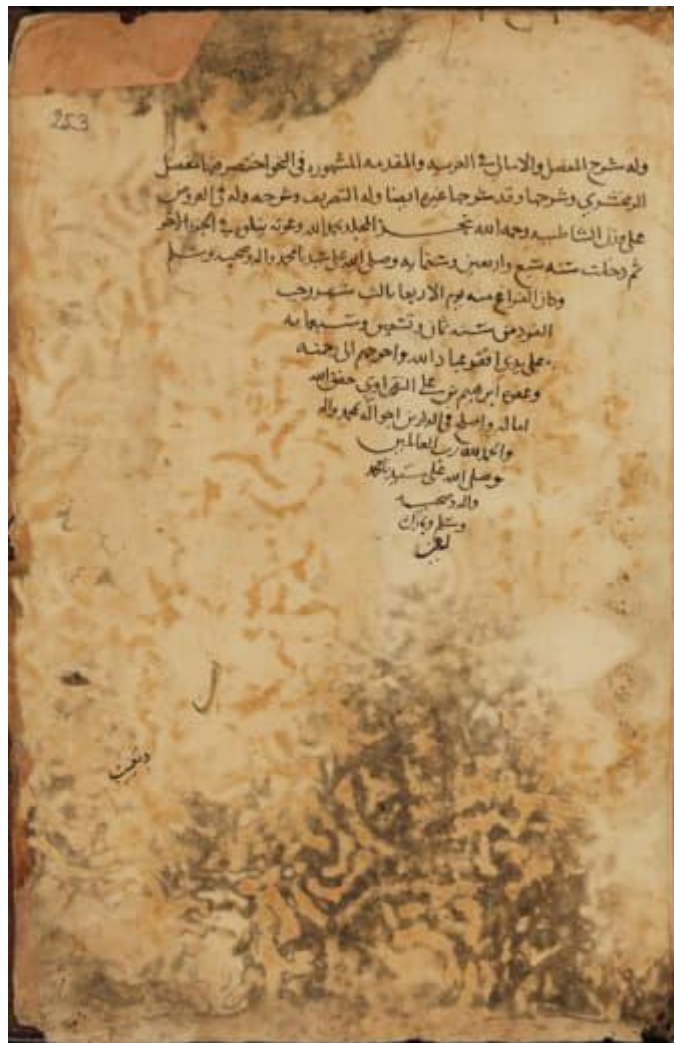 253
وله شرح المفصل والامالي في العربيه والمقدمه المشهوره في النحو اختصر فيها مفصل
الزمخشري وشرحها وقد شرحها غيره ايضا وله التصريف وشرحه وله في العروض
على وزن الشاطبيه رحمه الله نجز المجلد بحمد الله وعونه يتلوه في الجزء الاخر
ثم دخلت سنه سبع واربعين وستمايه وصلى الله على سيدنا محمد واله وصحبه وسلم
وكان الفراغ منه يوم الاربعا ثالث شهر رجب
الفرد من سنه ثمان وتسعين وسبعمايه
على يدي افقر عباد الله واحوجهم الى رحمته
وعفوه ابرهيم بن علي حقق الله
اماله واصلح في الدارين احواله بمحمد واله
والحمد لله رب العالمين
وصلى الله على سيدنا محمد
واله وصحبه
وسلم وبارك